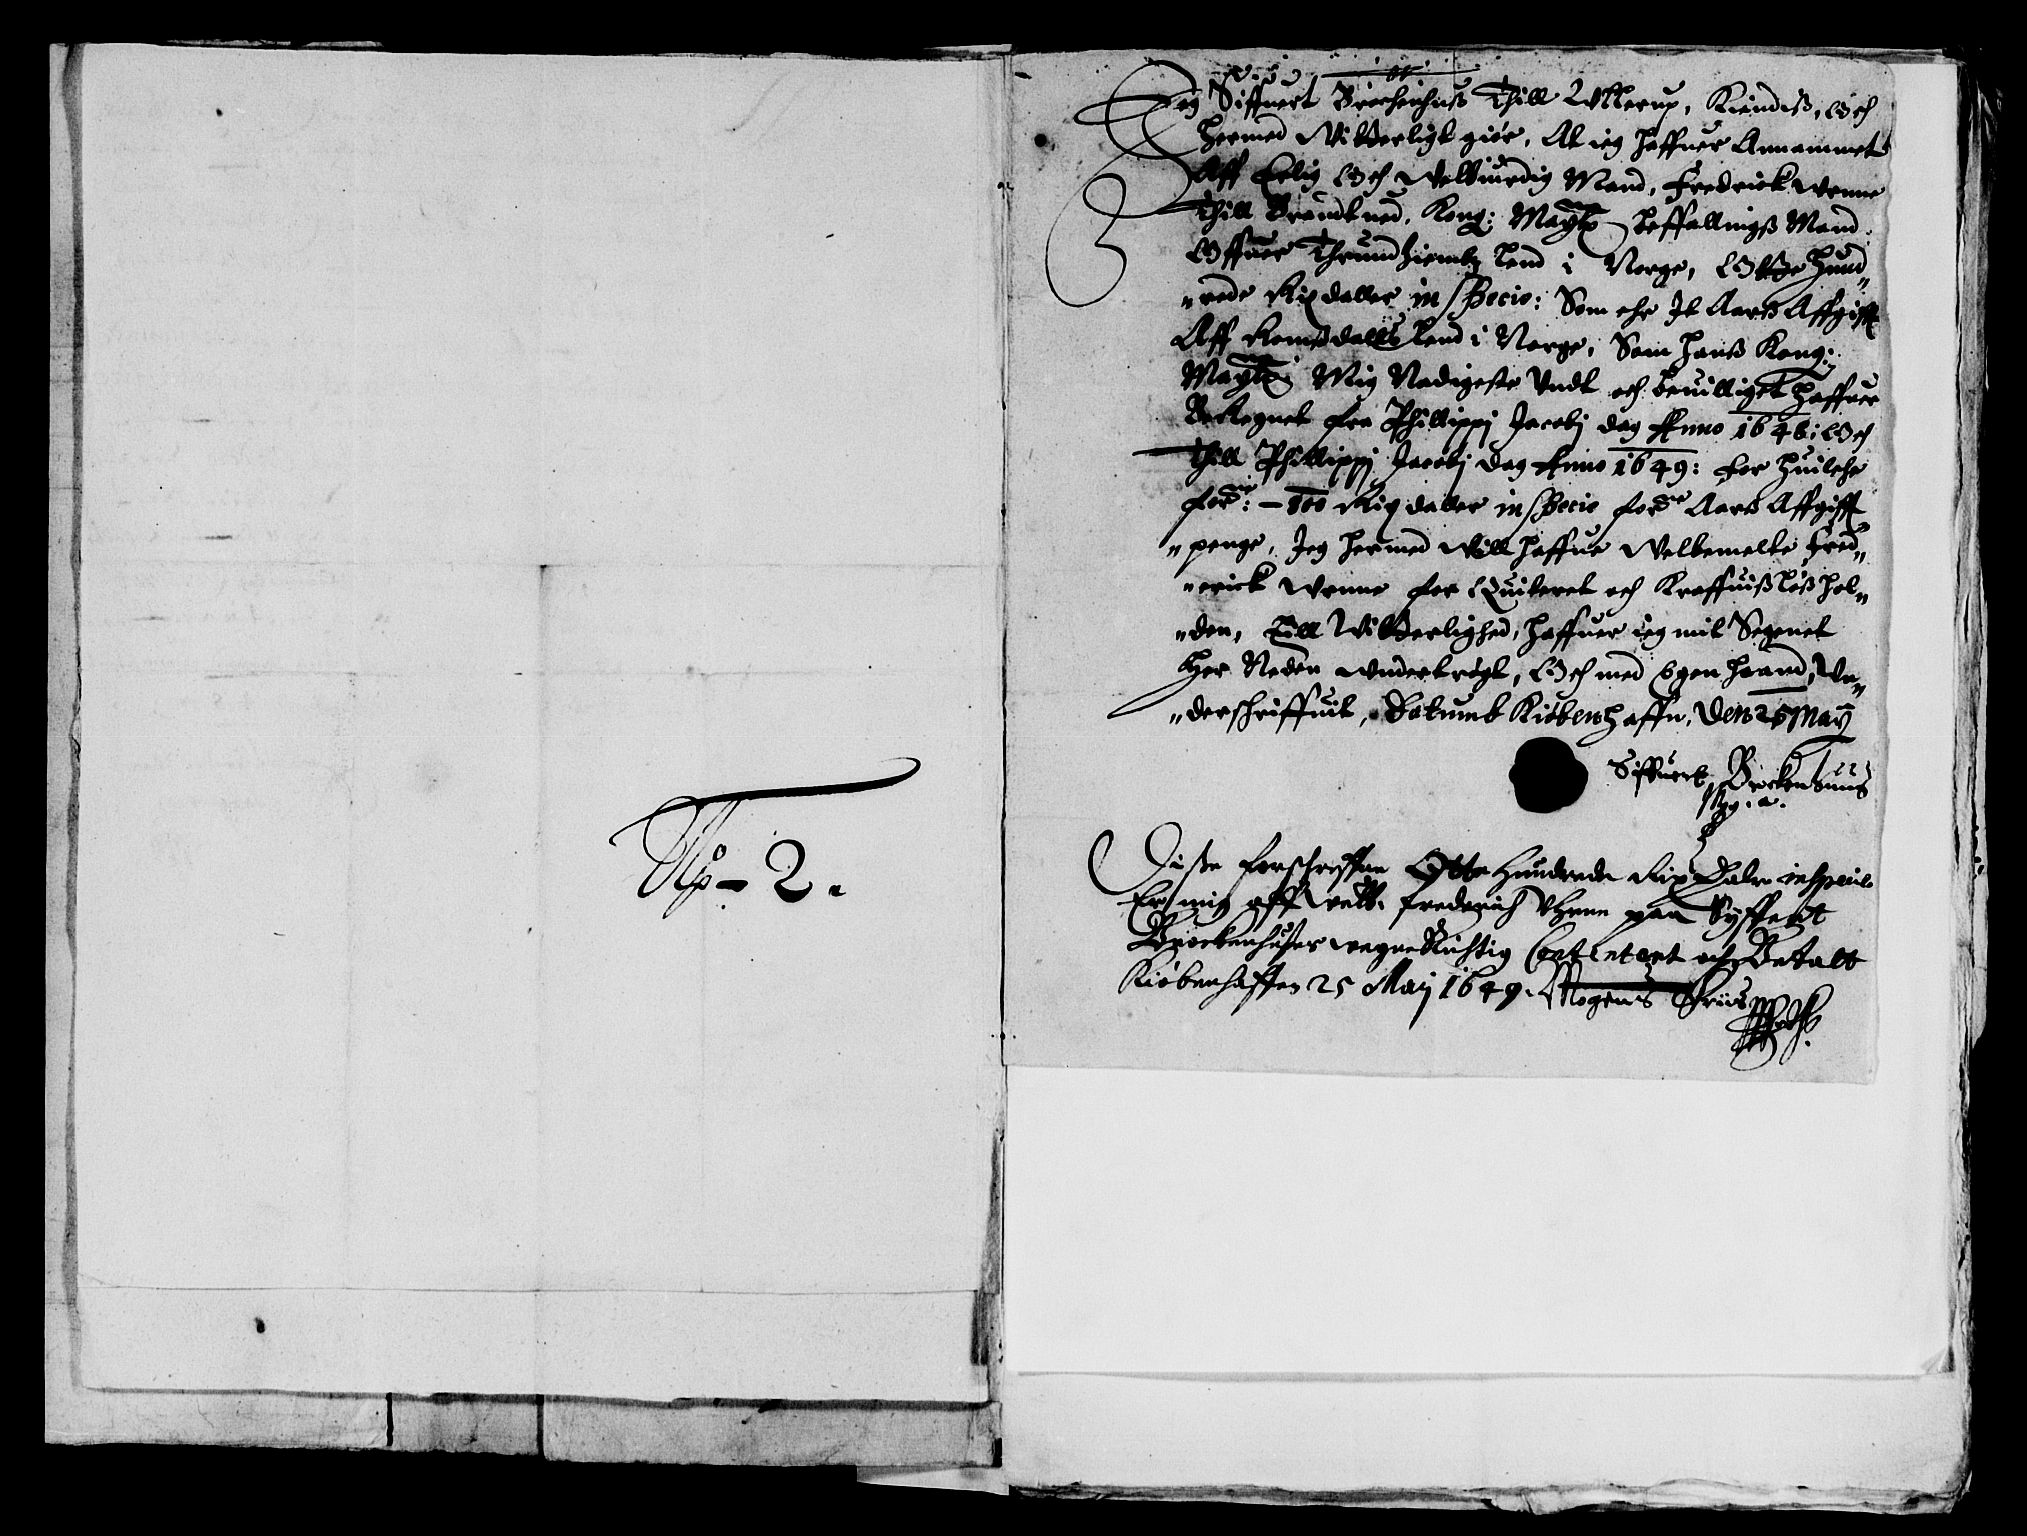 No - 2.
Jeg Siffuert Brochenhuß Thill Ullerup, Kiendiß, Och
hermed Vitterligt giör, At ieg haffuer Annammet
Aff Erlig Och Welbiurdig Mand, Fredrick Wrnne
Thill Brendtued, Kong: Maytz Beffallingß Mand
Offuer Thrundhiembß Lend i Norge, Otte Hund„
„rede Rixdaller in Specie: Som ehr It Aarß Affgifft
Aff Romsdallß Lend i Norge, Som Hanß Kong:
Maytz Mig Nadigeste Undt och beuilliget haffuer
Beregnet fra Phillippj Jacobj dag Anno 1648: Och
Thill Phillippj Jacobj dag Anno 1649: For huilche
forne: - 800 Rixdaller in Specie forne Aarß Affgifft
„penge, Jeg hermed Will haffue Welbemelte Fred„
„erick Wrnne for Quiteret och Kraffuißløß hol„
„den, Till Vitterlighed, haffuer ieg mit Segenet
Her Neden Undertrögt, Och med Egen haand, Un„
„derschriffuit, Datumb Kiöbenhaffn, Den 25 May
Siffuert Brockenhuus
Diße forschreffne Otte Hundrede Rix Daler in specie
Er mig aff Welb. frederich Vhrne paa Syffert
Brockenhußes wegne Richtig Contentert och Betalt
Kiöbenhaffen 25 Maij 1649. Mogens Friis